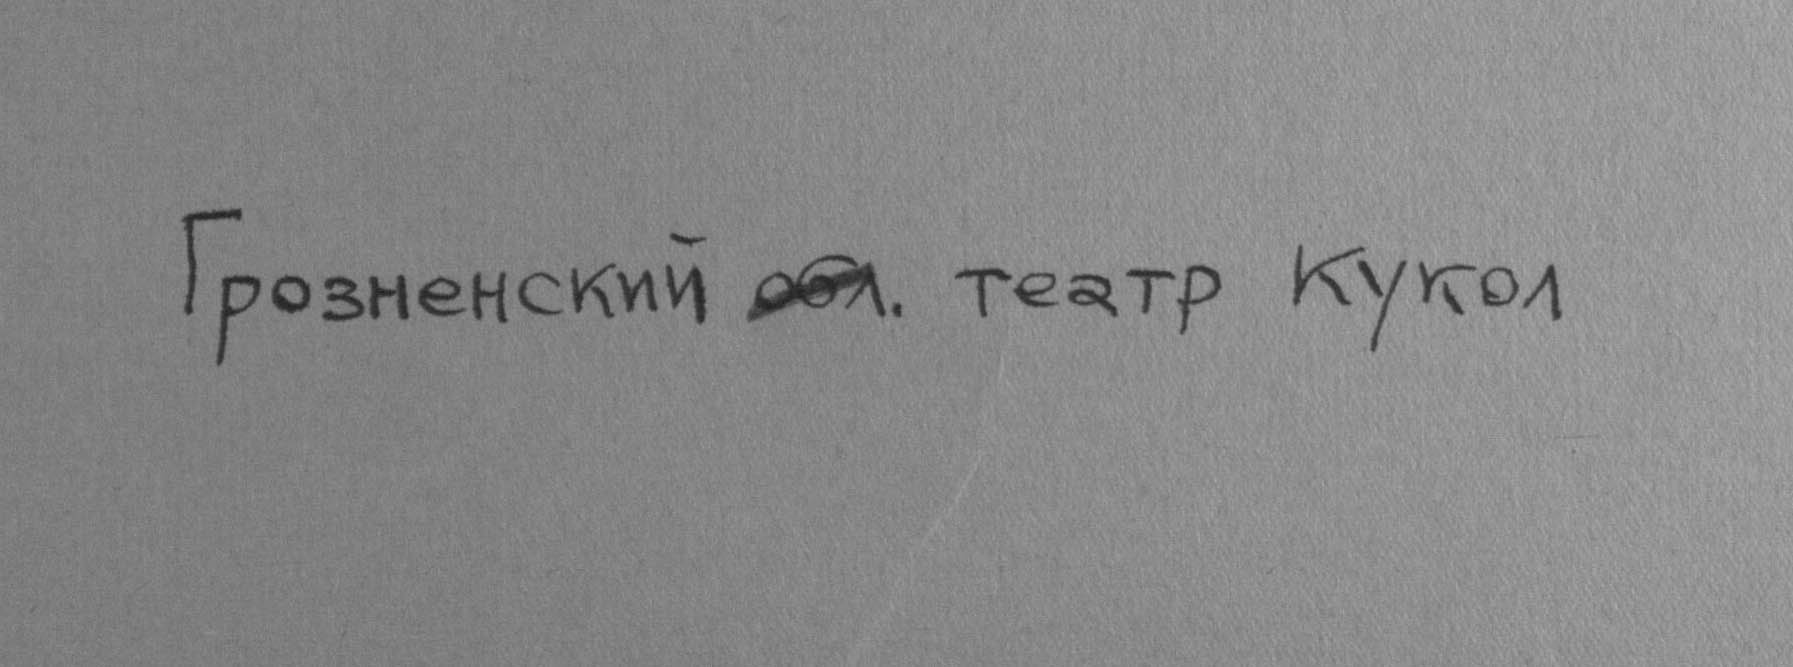 Грозненский обл. театр Кукол